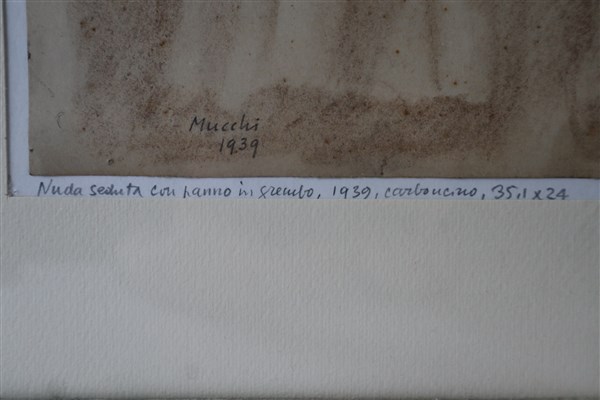 Mucchi
1939
Nuda seduta con panno in grembo, 1939, carboncino, 35,1 x 24